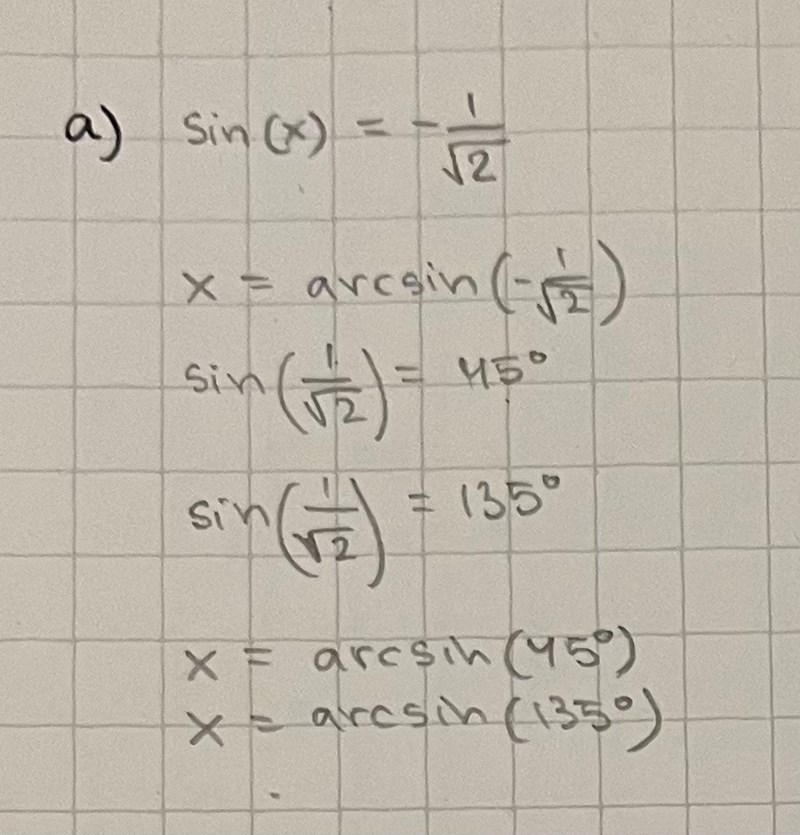 a) sin(x) = -1/√2
x = arcsin(-1/√2)
sin(1/√2) = 45°
sin(1/√2) = 135°
x = arcsin(45°)
x = arcsin(135°)